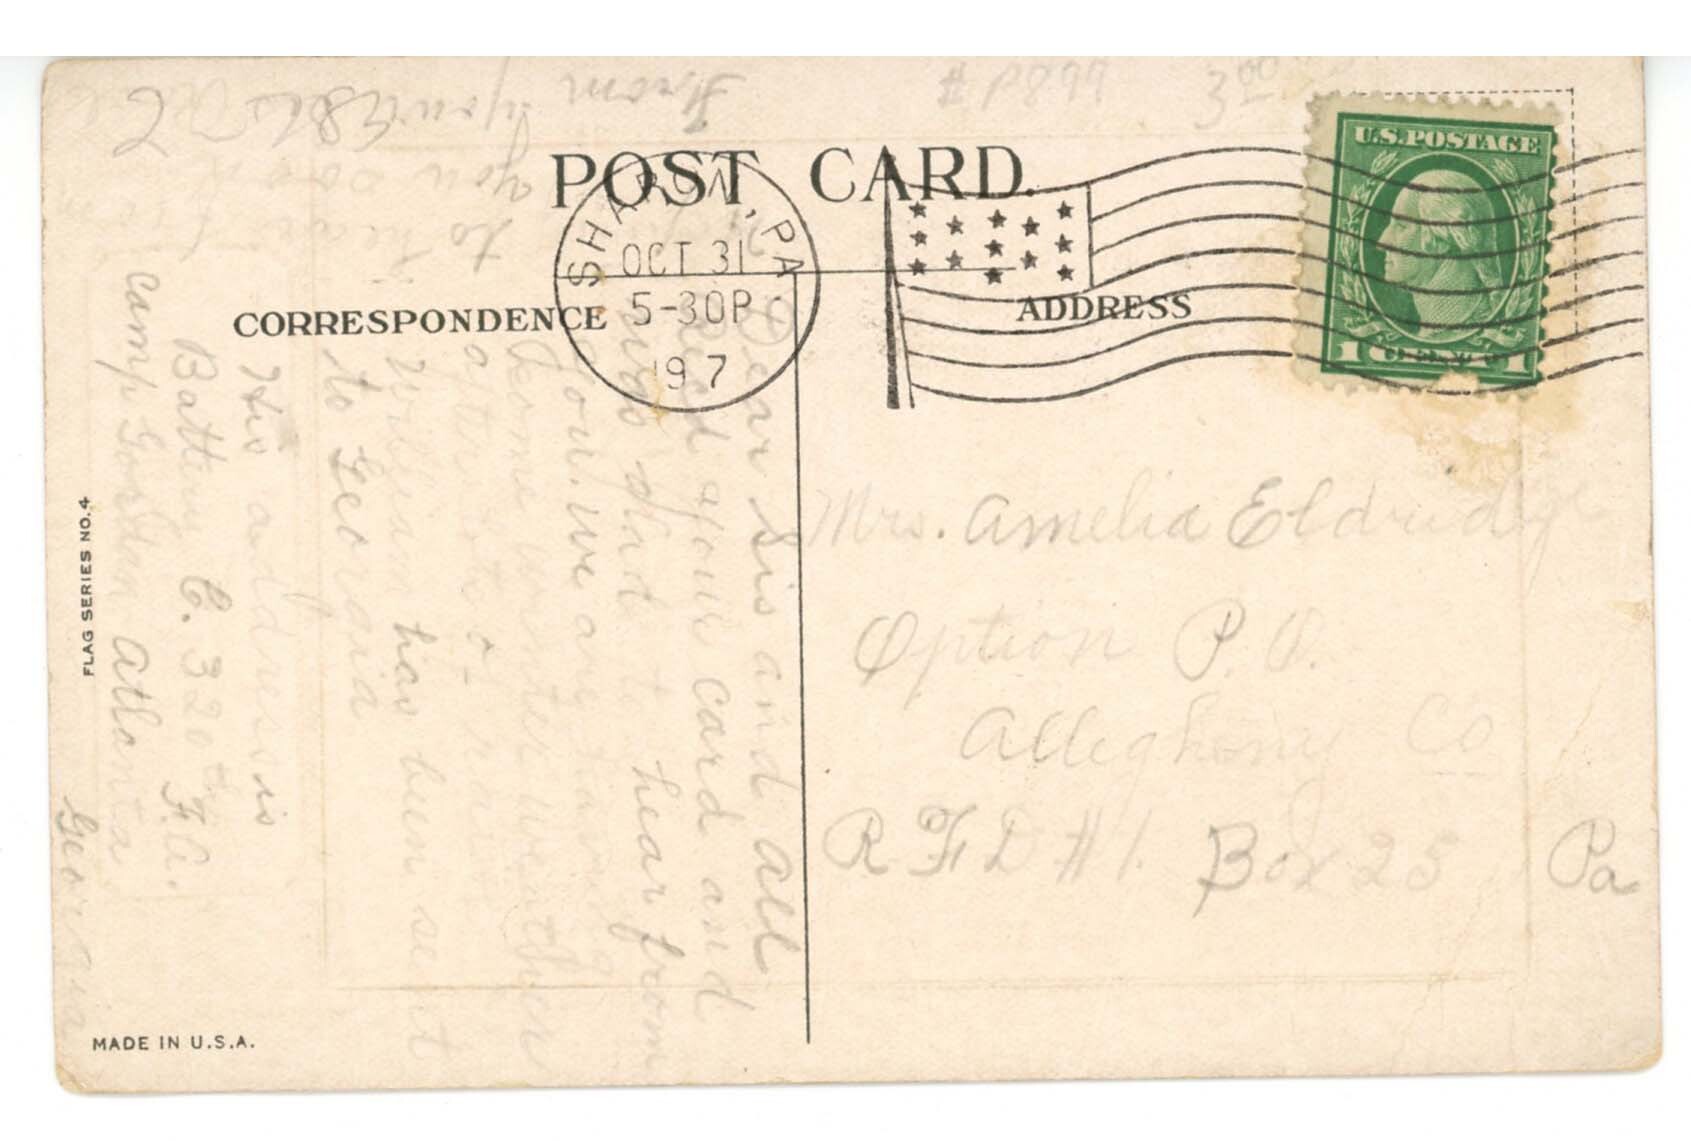 From
# P899 3.00
you
you soon
to hear
POST CARD.
U.S. POSTAGE
1 CENT 1
SHARON, PA
OCT 31
5-30P
1917
CORRESPONDENCE
ADDRESS
Dear Sis and all
Recd your card and
was glad to hear from
you. we are having
some winter weather
after
William has been sent
to Georgia
His address is
Battery C. 320th F.A.
Camp Gordon Atlanta
Georgia
Mrs. Amelia Eldridge
Option P.O.
Allegheny Co
R F D #1. Box 25 Pa
FLAG SERIES NO. 4
MADE IN U.S.A.